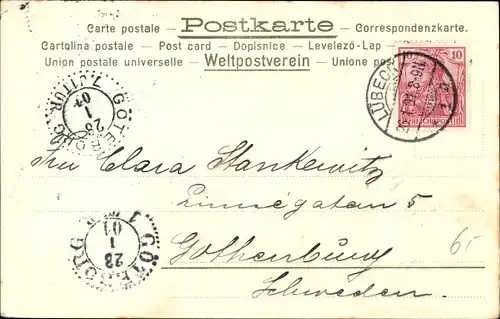 Carte postale – Postkarte – Correspondenzkarte.
Cartolina postale – Post card – Dopisnice – Levelező-Lap –
Union postale universelle – Weltpostverein – Unione po
10
LÜBECK
REICHSPOST
GÖTEBORG
1 TUR
28
1
01
Clara Stankewitz
Linnégatan 5
Gothenburg
Schweden.
6.-
GÖTEBORG
28
1
01